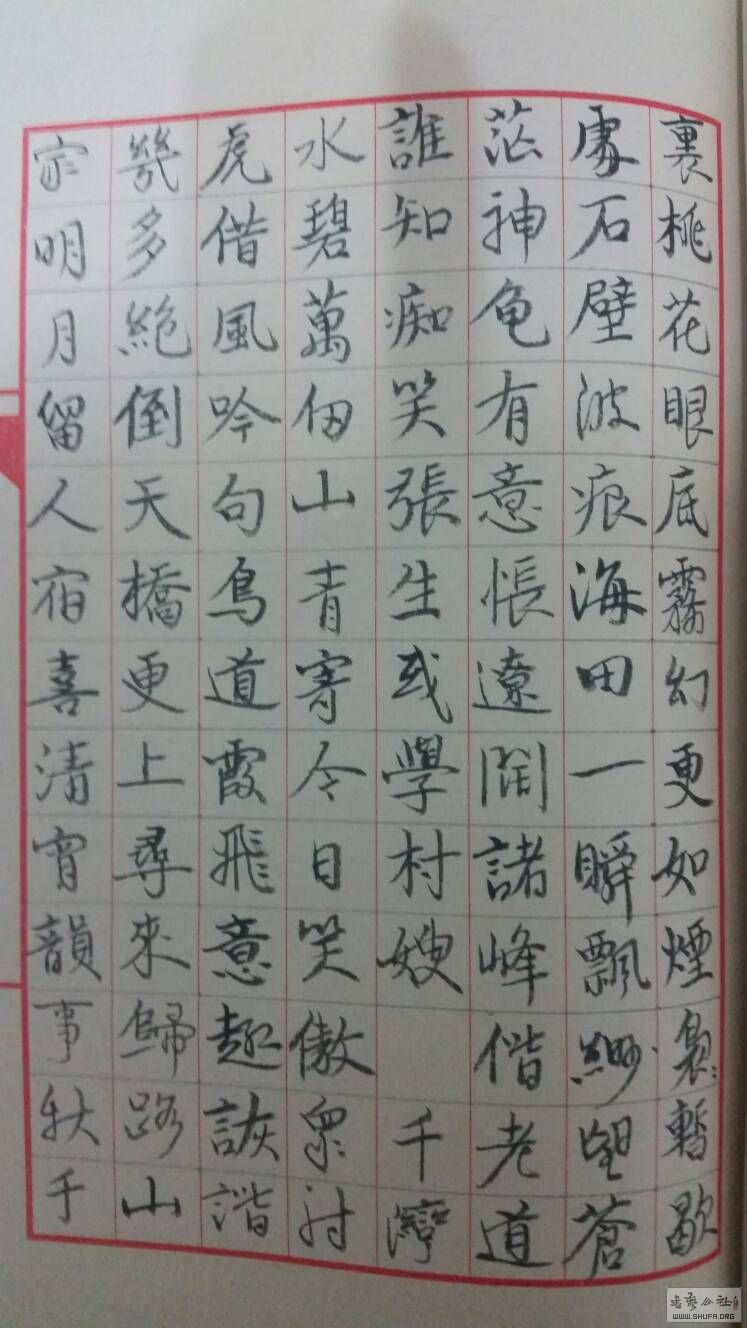 裏桃花眼底霧幻更如煙裊:暫歇
處石壁波痕海田一瞬飄緲望蒼
茫神龟有意悵遼闊諸峰偕老道
誰知痴笑張生或學村嫂 千灣
水碧萬田山青寄今日笑傲眾討
虎借風吟句鳥道霞飛意趣詼諧
幾多絕倒天橋更上尋來歸路山
家明月留人宿喜清宵韻事秋千
書藝公社
WWW.SHUFA.ORG